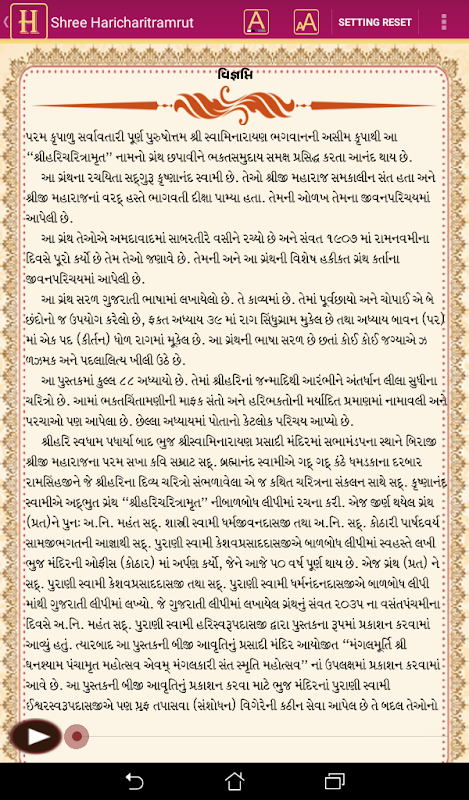 Shree Haricharitramrut
SETTING RESET
વિજ્ઞપ્તિ
પરમ કૃપાળુ સર્વાવતારી પૂર્ણ પુરુષોત્તમ શ્રી સ્વામિનારાયણ ભગવાનની અસીમ કૃપાથી આ
“શ્રીહરિચરિત્રામૃત” નામનો ગ્રંથ છપાવીને ભક્તસમુદાય સમક્ષ પ્રસિદ્ધ કરતા આનંદ થાય છે.
આ ગ્રંથના રચયિતા સદ્‌ગુરૂ કૃષ્ણાનંદ સ્વામી છે. તેઓ શ્રીજી મહારાજ સમકાલીન સંત હતા અને
શ્રીજી મહારાજનાં વરદ્ હસ્તે ભાગવતી દીક્ષા પામ્યા હતા. તેમની ઓળખ તેમના જીવનપરિચયમાં
આપેલી છે.
આ ગ્રંથ તેઓએ અમદાવાદમાં સાબરતીરે વસીને રચ્યો છે અને સંવત ૧૯૦૭ માં રામનવમીના
દિવસે પૂરો કર્યો છે તેમ તેઓ જણાવે છે. તેમની અને આ ગ્રંથની વિશેષ હકીકત ગ્રંથ કર્તાના
જીવનપરિચયમાં આપેલી છે.
આ ગ્રંથ સરળ ગુજરાતી ભાષામાં લખાયેલો છે. તે કાવ્યમાં છે. તેમાં પૂર્વછાયો અને ચોપાઈ એ બે
છંદોનો જ ઉપયોગ કરેલો છે, ફક્ત અધ્યાય ૩૯ માં રાગ સિંધુગ્રામ મુકેલ છે તથા અધ્યાય બાવન (૫૨)
માં એક પદ (કીર્તન) ધોળ રાગમાં મૂકેલ છે. આ ગ્રંથની ભાષા સરળ છે છતાં કોઈ કોઈ જગ્યાએ ઝ
ળઝમક અને પદલાલિત્ય ખીલી ઉઠે છે.
આ પુસ્તકમાં કુલ્લ ૮૮ અધ્યાયો છે. તેમાં શ્રીહરિનાં જન્માદિથી આરંભીને અંતર્ધાન લીલા સુધીના
ચરિત્રો છે. આમાં ભક્તચિંતામણીની માફક સંતો અને હરિભક્તોની મર્યાદિત પ્રમાણમાં નામાવલી અને
પરચાઓ પણ આપેલા છે. છેલ્લા અધ્યાયમાં પોતાનો કેટલોક પરિચય આપ્યો છે.
શ્રીહરિ સ્વધામ પધાર્યા બાદ ભુજ શ્રીસ્વામિનારાયણ પ્રસાદી મંદિરમાં સભામંડપના સ્થાને બિરાજી
શ્રીજી મહારાજના પરમ સખા કવિ સમ્રાટ સદ્. બ્રહ્માનંદ સ્વામીએ ગદ્ ગદ્ કંઠે ધમડકાના દરબાર
રામસિંહજીને જે શ્રીહરિના દિવ્ય ચરિત્રો સંભળાવેલા એ જ કથિત ચરિત્રના સંકલન સાથે સદ્. કૃષ્ણાનંદ
સ્વામીએ અદ્‌ભુત ગ્રંથ “શ્રીહરિચરિત્રામૃત” નીબાળબોધ લીપીમાં રચના કરી. એજ જીર્ણ થયેલ ગ્રંથ
(પ્રત)ને પુનઃ અ.નિ. મહંત સદ્. શાસ્ત્રી સ્વામી ધર્મજીવનદાસજી તથા અ.નિ. સદ્. કોઠારી પાર્ષદવર્ય
સામજીભગતની આજ્ઞાથી સદ્. પુરાણી સ્વામી કેશવપ્રસાદદાસજીએ બાળબોધ લીપીમાં સ્વહસ્તે લખી
ભુજ મંદિરની ઓફીસ (કોઠાર) માં અર્પણ કર્યો, જેને આજે ૫૦ વર્ષ પૂર્ણ થાય છે. એજ ગ્રંથ (પ્રત) ને
સદ્. પુરાણી સ્વામી કેશવપ્રસાદદાસજી તથા સદ્. પુરાણી સ્વામી ધર્મનંદનદાસજીએ બાળબોધ લીપી
માંથી ગુજરાતી લીપીમાં લખ્યો. જે ગુજરાતી લીપીમાં લખાયેલ ગ્રંથનું સંવત ૨૦૩૫ ના વસંતપંચમીના
દિવસે અ.નિ. મહંત સદ્. પુરાણી સ્વામી હરિસ્વરૂપદાસજી દ્વારા પુસ્તકના રૂપમાં પ્રકાશન કરવામાં
આવ્યું હતું. ત્યારબાદ આ પુસ્તકની બીજી આવૃતિનું પ્રસાદી મંદિર આયોજીત “મંગલમૂર્તિ શ્રી
ઘનશ્યામ પંચામૃત મહોત્સવ એવમ્ મંગલકારી સંત સ્મૃતિ મહોત્સવ” નાં ઉપલક્ષમાં પ્રકાશન કરવામાં
આવે છે. આ પુસ્તકની બીજી આવૃતિનું પ્રકાશન કરવા માટે ભુજ મંદિરનાં પુરાણી સ્વામી
ઈશ્વરસ્વરૂપદાસજીએ પણ પ્રુફ તપાસવા (સંશોધન) વિગેરેની કઠીન સેવા આપેલ છે તે બદલ તેઓનો